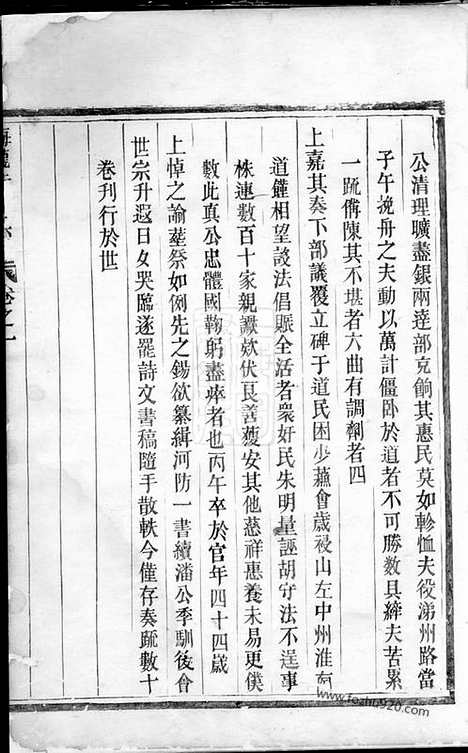 公清理曠盡銀兩達部克餉其惠民莫如軫恤夫役涿州路當
子午挽舟之夫動以萬計僵臥於道者不可勝數具縴夫苦累
一疏備陳其不堪者六曲有調劑者四
上嘉其奏下部議覆立碑于道民困少蘓會歲祲山左中州淮
道殣相望設法倡賑全活者衆奸民朱明量誣胡守法不逞事
株連數百十家親讞欵伏良善獲安其他慈祥惠養未易更僕
數此真公忠體國鞠躬盡瘁者也丙午卒於官年四十四歲
上悼之諭塟祭如例先之錫欲纂緝河防一書續潘公季馴後會
世宗升遐日夕哭臨遂罷詩文書稿隨手散軼今僅存奏疏數十
卷刊行於世
卷之一
www.fozhu920.com